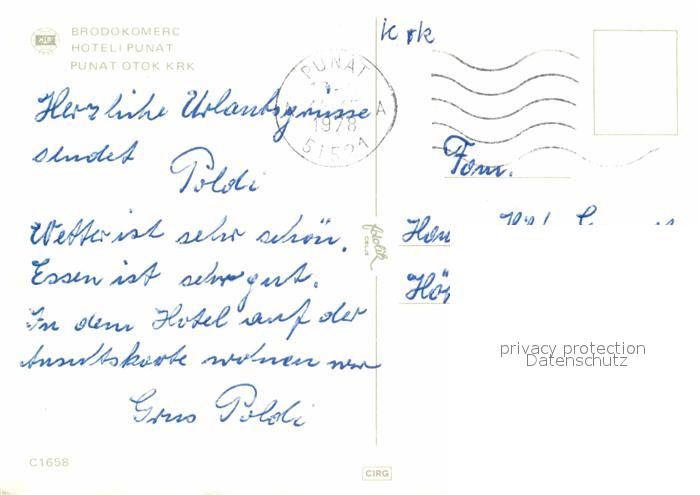 BRODOKOMERC
HOTELI PUNAT
PUNAT OTOK KRK
Krk
PUNAT
1978
51521
A
Herzliche Urlaubsgrüsse
sendet
Poldi
Wetter ist sehr schön.
Essen ist sehr gut.
In dem Hotel auf der
Ansichtskarte wohnen wir
Gruss Poldi
Fam.
fotolik
CELJE
privacy protection
Datenschutz
C1658
CIRG